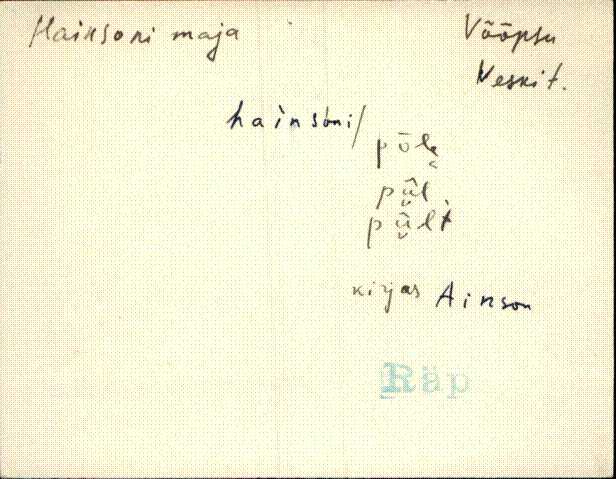 Hainsoni maja
Vööpsu
Neskit.
hainsoni/
põlę
pü̬̂l
pü̬̂lt
kirjas Ainson
Räp